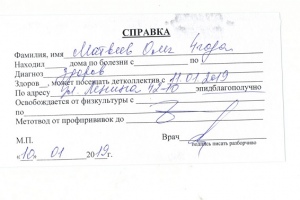 СПРАВКА
Фамилия, имя Матвеев Олег 4 года
Находил дома по болезни с по
Диагноз здоров
Здоров, может посещать детколлектив с 11.01.2019
По адресу ул Ленина 42-10 эпидблагополучно
Освобождается от физкультуры с
по
Метотвод от профпрививок до
М.П. Врач
подпись писать разборчиво
«10» 01 2019г.